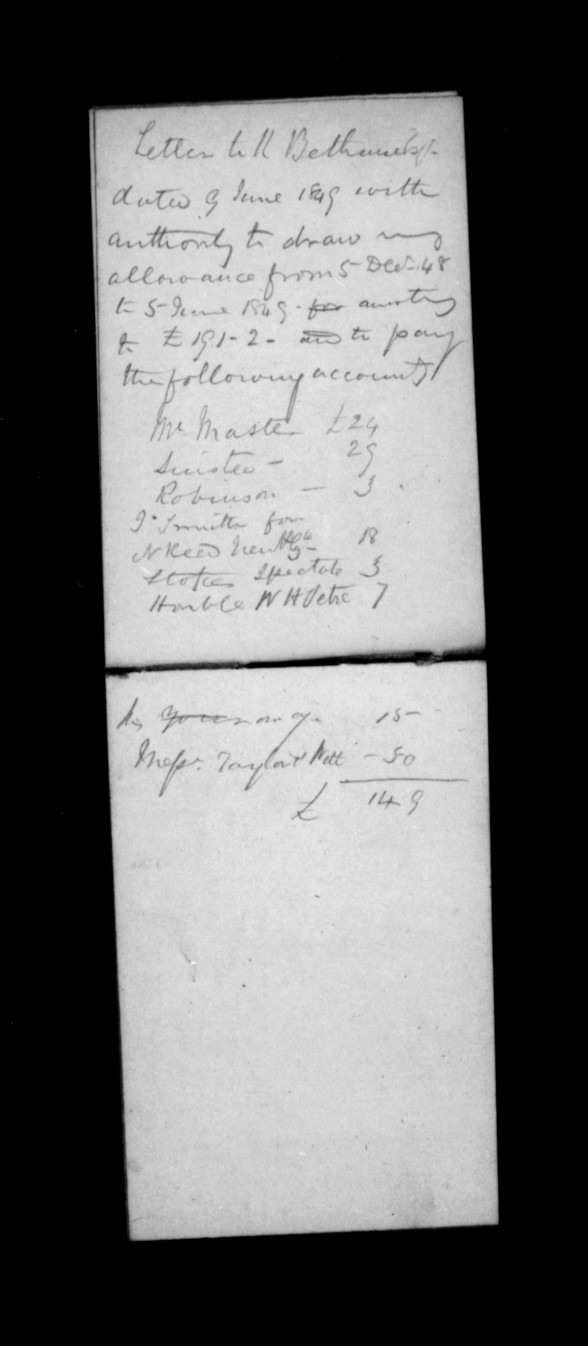 Letter to R Bethune Esqr
dated 9 June 1849 with
authority to draw my
allowance from 5 Decr. 48
to 5 June 1849 - for amotng
to £ 191-2- and to pay
the following accounts
Mr Master £24
29
Robinson - 3
Smith for
18
Stokes Spectator 3
Honble W H Petre 7
on a/c 15
Messrs. Taylor & Witt - 50
£ 149